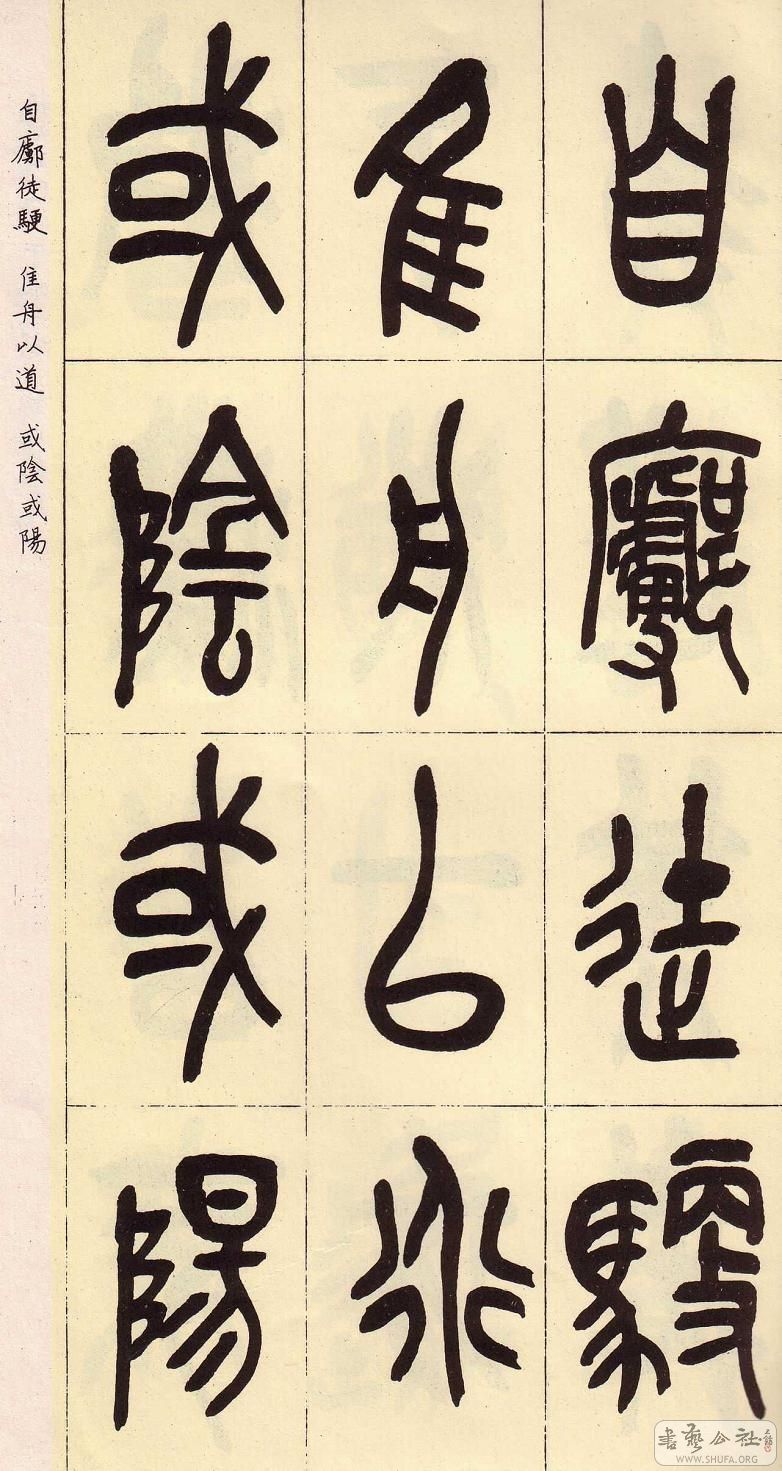 自徒
隹舟以道
或陰或陽
自徒 隹舟以道 或陰或陽
書藝公社
WWW.SHUFA.ORG